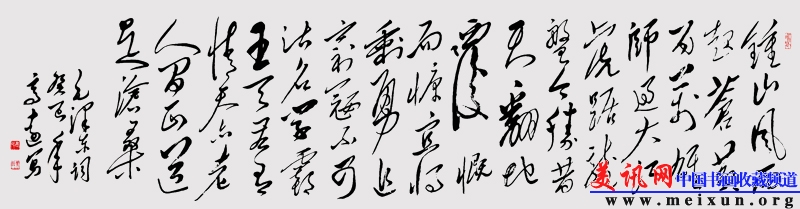 鍾山風雨
起蒼黃
百萬雄
師過大江
虎踞龍
盤今勝昔
天翻地
覆慨
而慷宜將
剩勇追
窮寇不可
沽名學霸
王天若有
情天亦老
人間正道
是滄桑
毛澤東詞
癸巳年
寫
美讯网 中国书画收藏频道
www.meixun.org